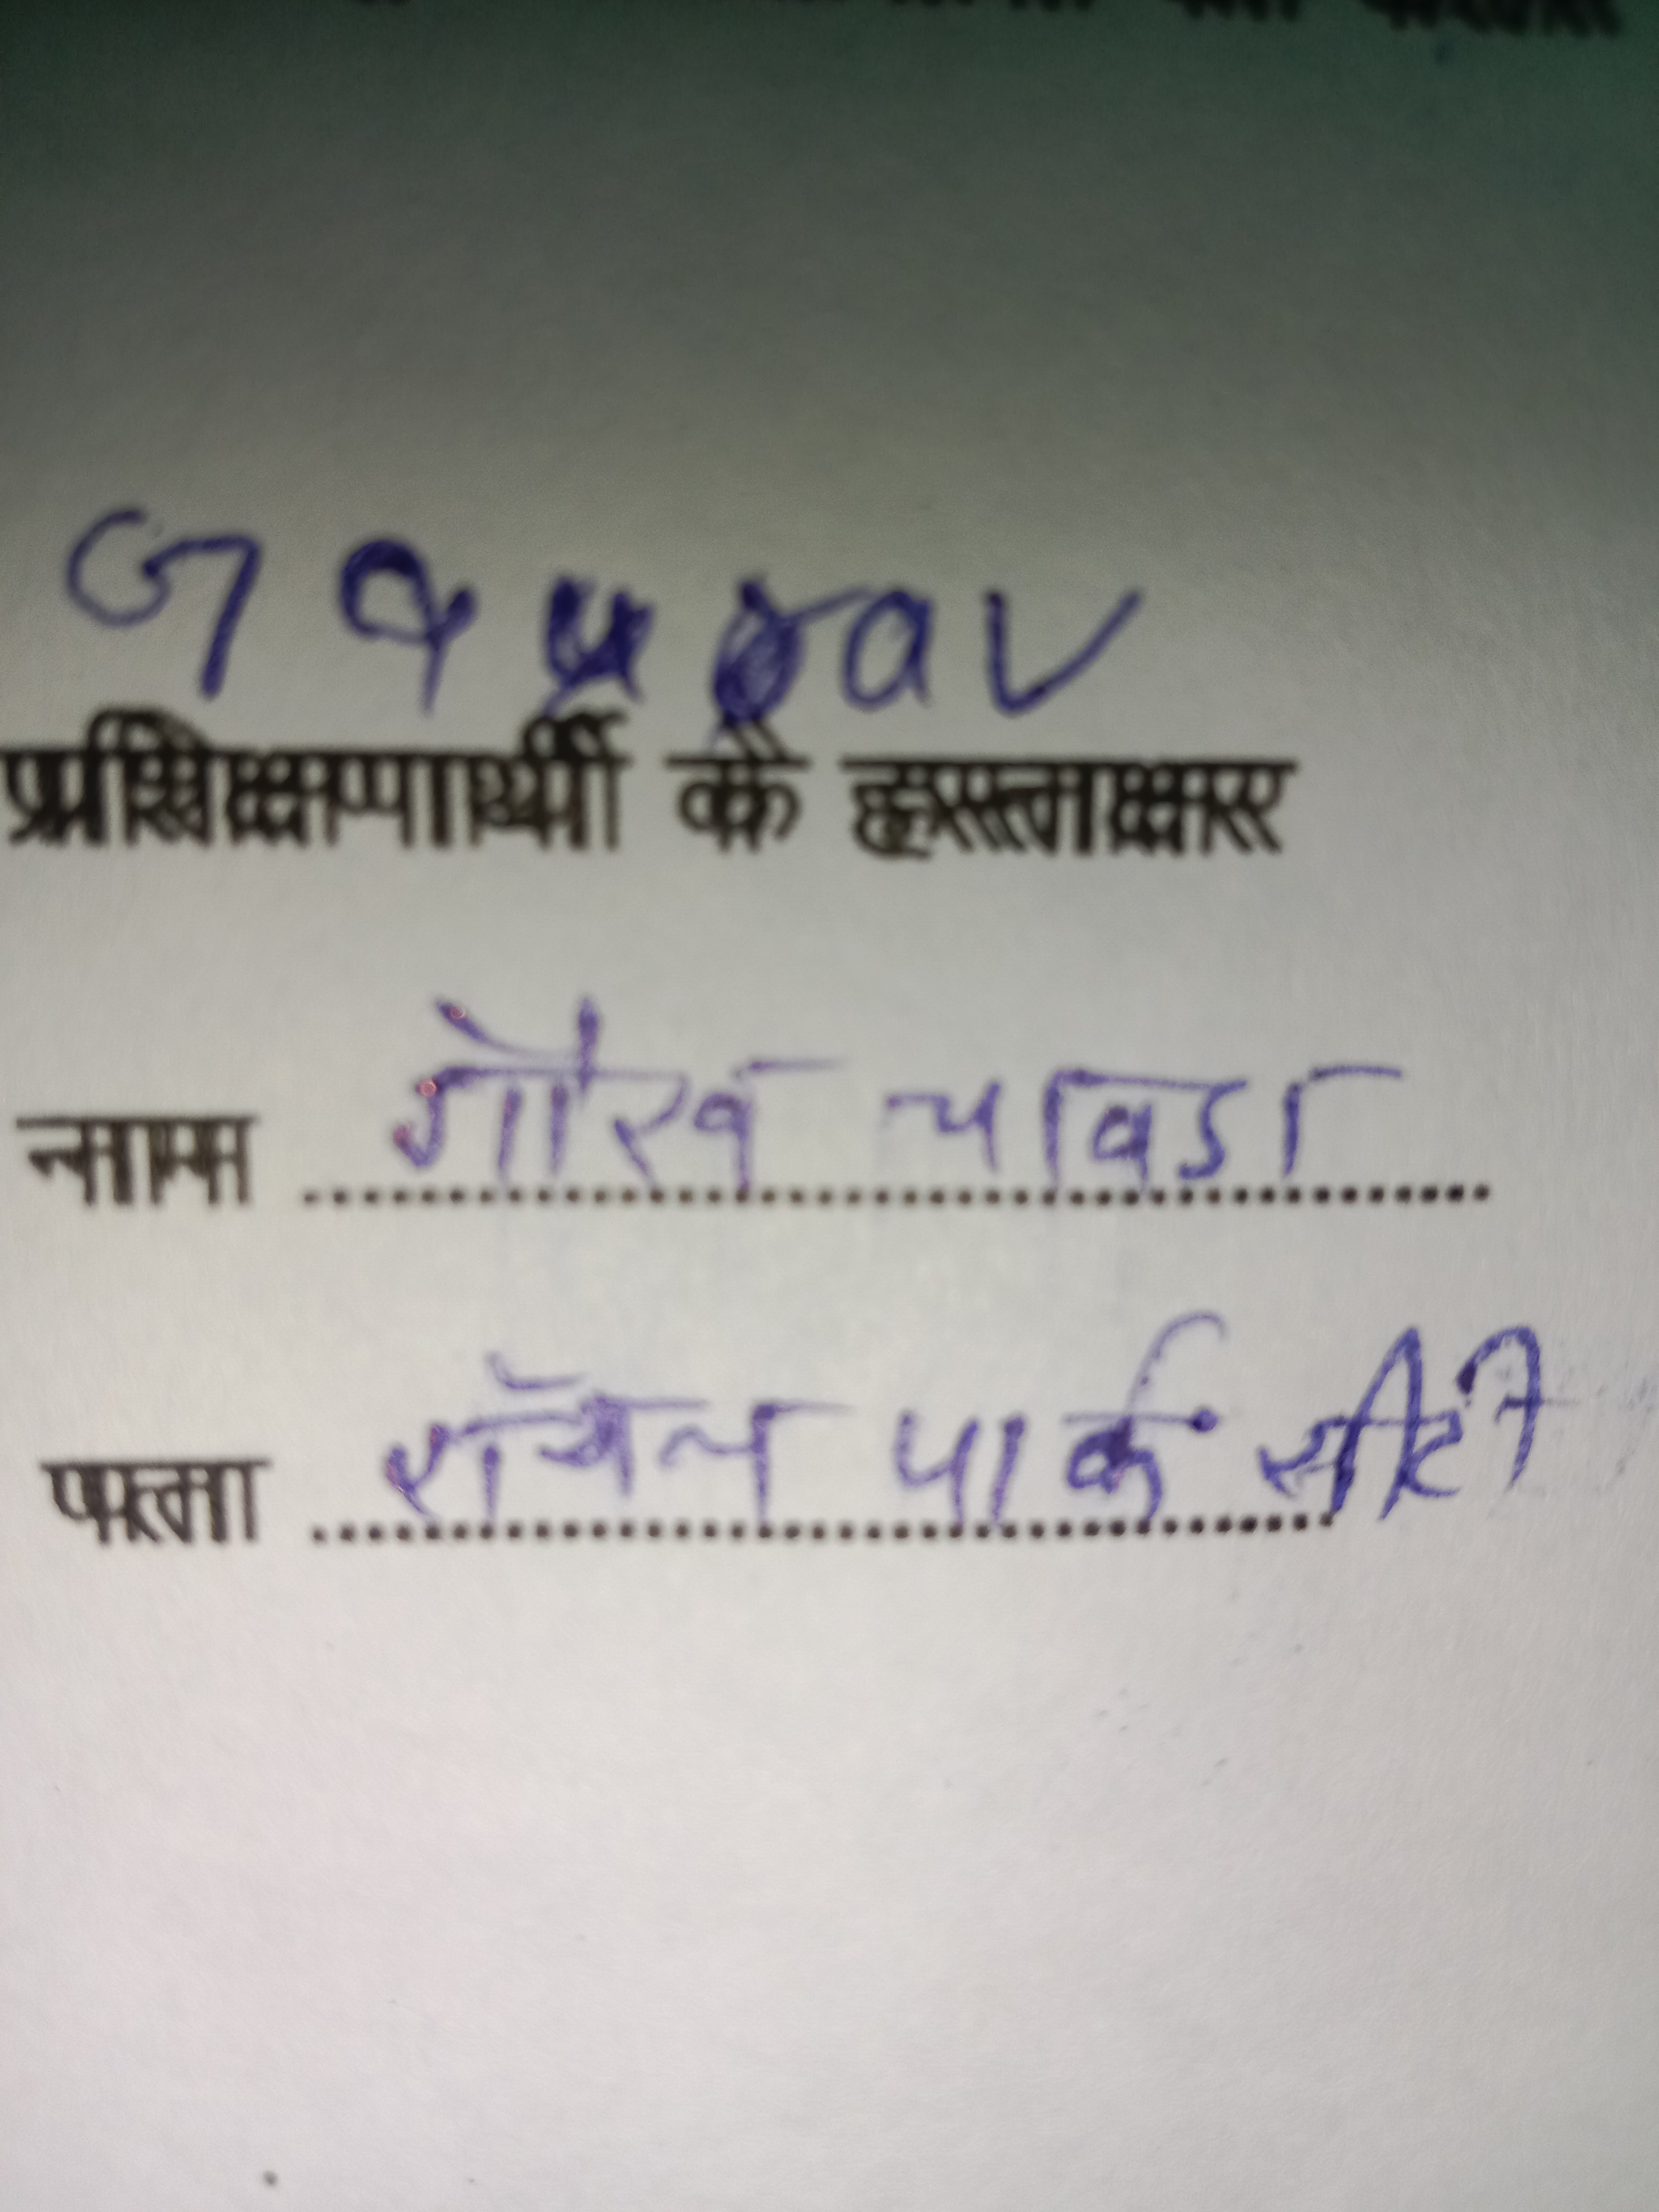 Gaurav
प्रशिक्षणार्थी के हस्ताक्षर
नाम गौरव चावडा
पत्ता रॉयल पार्क सीटी